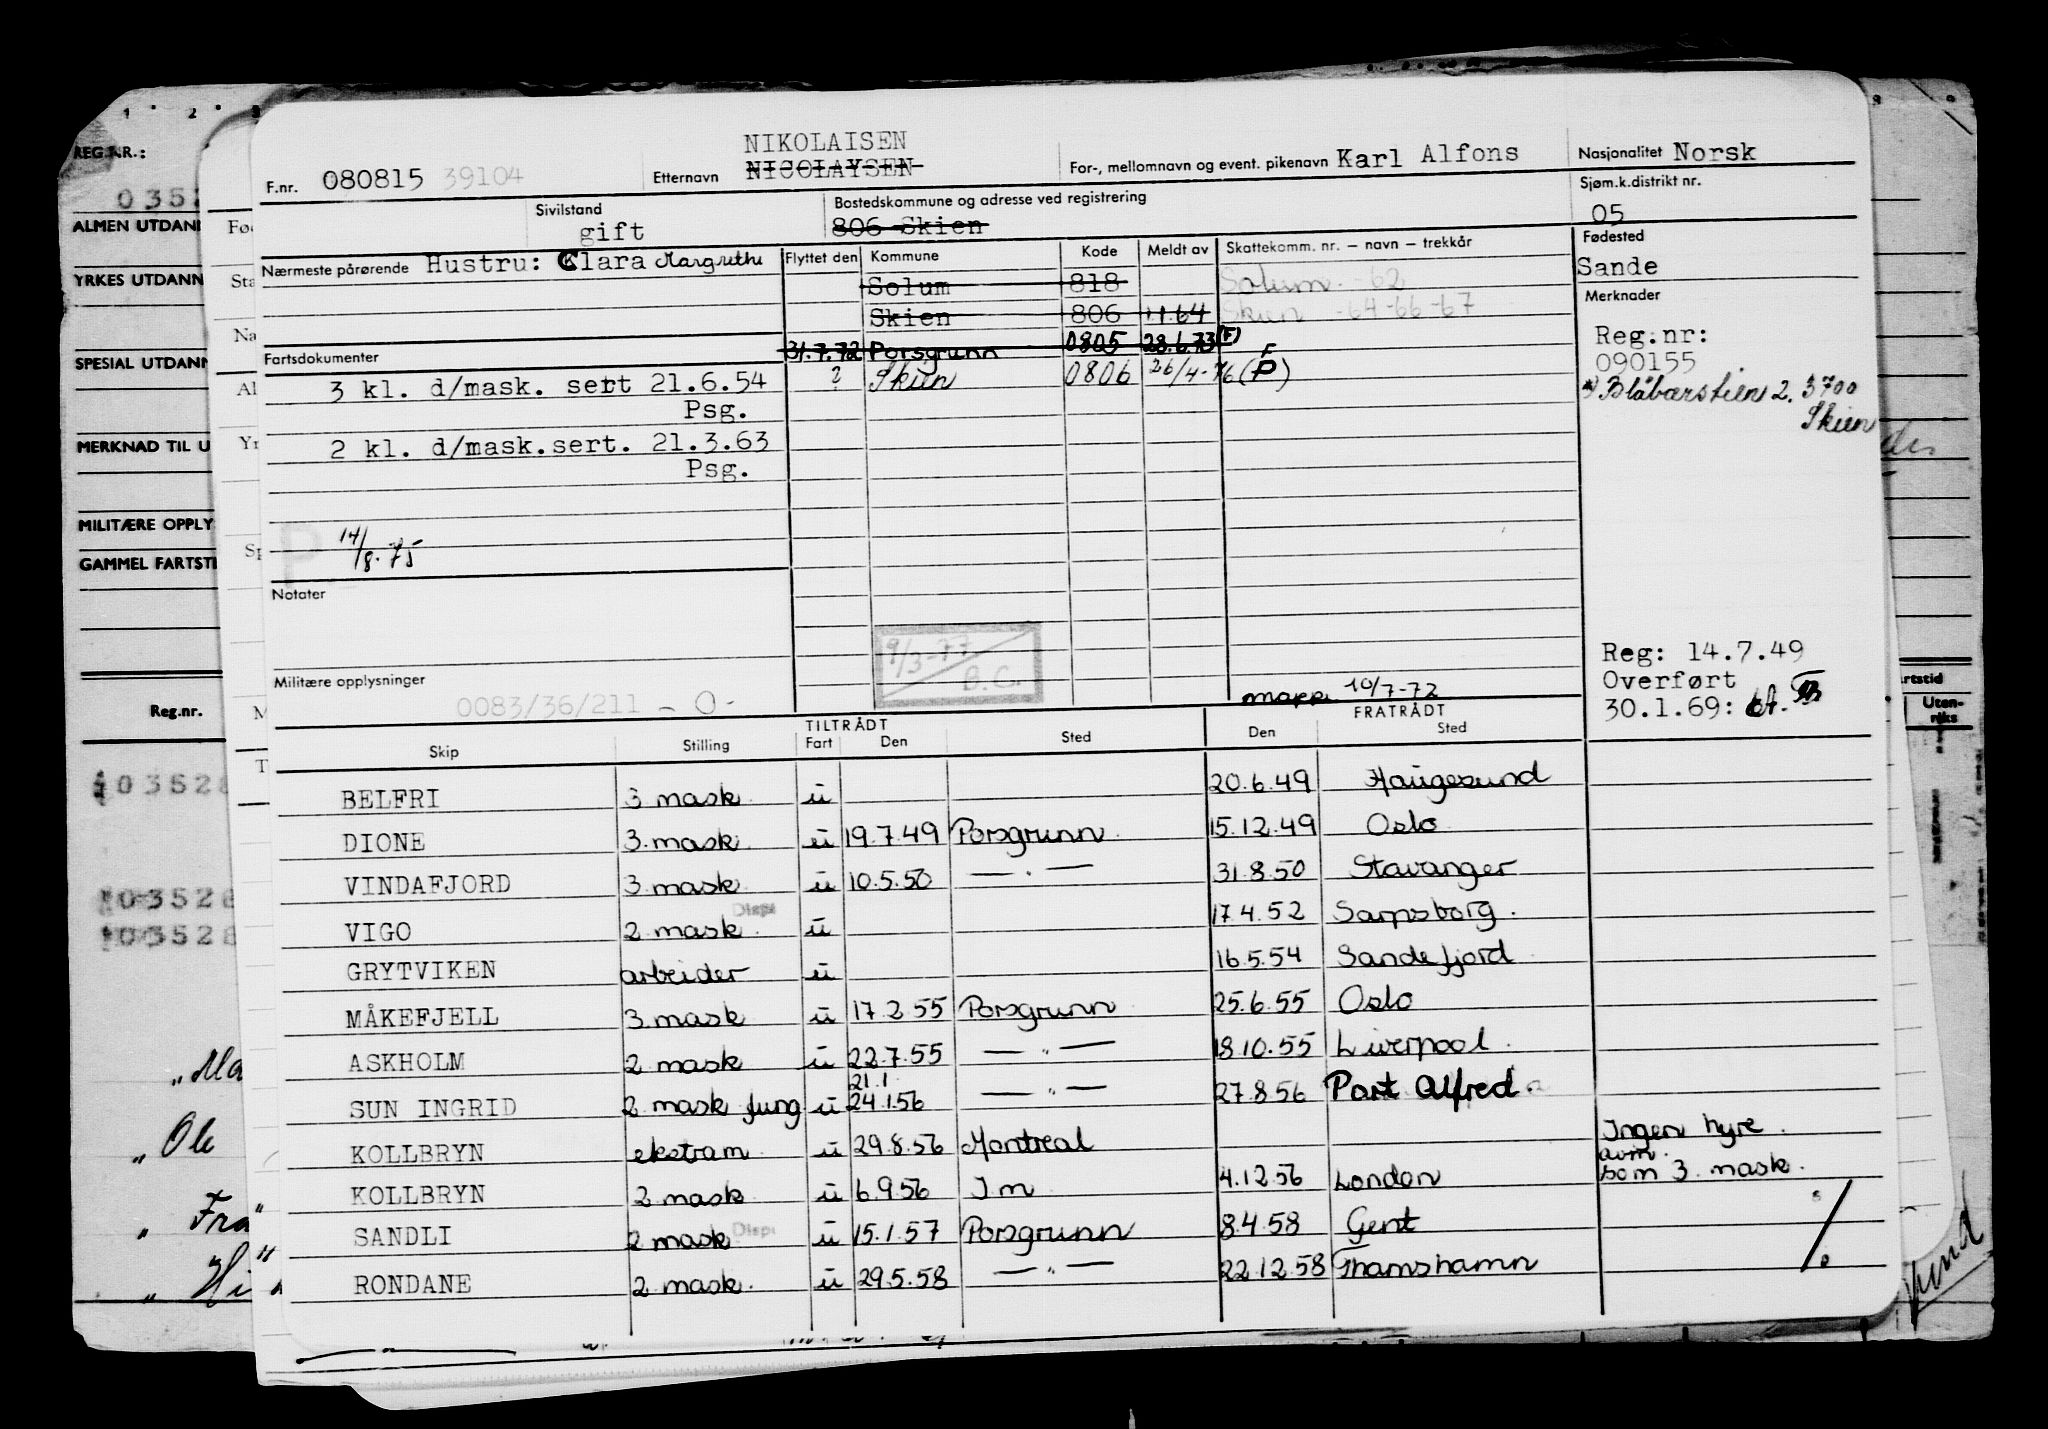 1 2
8 9
REG.NR.:
0352
ALMEN UTDANN
YRKES UTDANN
SPESIAL UTDANN
MERKNAD TIL U
MILITÆRE OPPLY
GAMMEL FARTSTI
Reg.nr.
03528
03528
03528
„ Ma
„ Ole
„ Fra
„ Hi
Fø
Sta
Na
Al
Yr
Sp
M
T
artstid
Uten-
riks
NIKOLAISEN
F.nr. 080815 39104 Etternavn NICOLAYSEN For-, mellomnavn og event. pikenavn Karl Alfons Nasjonalitet Norsk
Sivilstand gift
Bostedskommune og adresse ved registrering
806 Skien
Sjøm.k.distrikt nr.
05
Nærmeste pårørende Hustru: Clara Margrethe
Flyttet den Kommune Kode Meldt av Skattekomm. nr. – navn – trekkår
Fødested
Sande
Solum 818 Solum -62
Skien 806 1.1.64 Skien -64-66-67
31.7.72 Porsgrunn 0805 28.6.73 (F)
? Skien 0806 26/4-76 (P) F
Merknader
Reg.nr:
090155
*) Blåbærstien 2, 3700
Skien
Fartsdokumenter
3 kl. d/mask. sert 21.6.54
Psg.
2 kl. d/mask.sert. 21.3.63
Psg.
P
14/8.75
Notater
9/3-77
B.C.
Militære opplysninger
0083/36/211 - 0-
mapp. 10/7-72
Reg: 14.7.49
Overført
30.1.69:
TILTRÅDT FRATRÅDT
Skip Stilling Fart Den Sted Den Sted
BELFRI 3 mask. u 20.6.49 Haugesund
DIONE 3. mask. u 19.7.49 Porsgrunn 15.12.49 Oslo
VINDAFJORD 3 mask. u 10.5.50 — " — 31.8.50 Stavanger
VIGO 2 mask. Disp. u 17.4.52 Sarpsborg.
GRYTVIKEN arbeider u 16.5.54 Sandefjord
MÅKEFJELL 3. mask u 17.2.55 Porsgrunn 25.6.55 Oslo
ASKHOLM 2 mask u 22.7.55 — " — 18.10.55 Liverpool.
SUN INGRID 2 mask fung u 21.1. 24.1.56 — " — 27.8.56 Port Alfred
KOLLBRYN ekstram u 29.8.56 Montreal Ingen hyre.
KOLLBRYN 2 mask u 6.9.56 Im 4.12.56 London avm. som 3. mask.
SANDLI 2 mask Disp. u 15.1.57 Porsgrunn 8.4.58 Gent
RONDANE 2 mask. u 29.5.58 — " — 22.12.58 Thamshamn